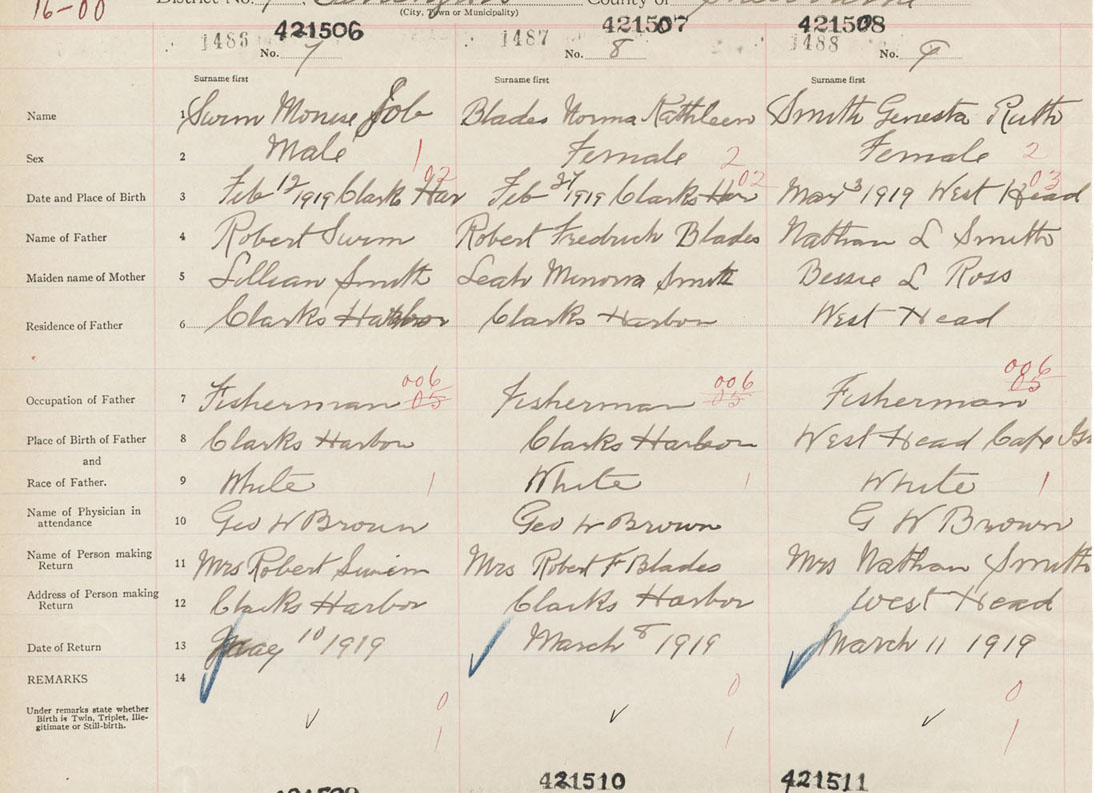 16-00 District No. 7 County of
(City, Town or Municipality)
421506 421507 421508
1486 1487 1488
No. 7 No. 8 No. 9
Surname first Surname first Surname first
Name 1 Swim Job Blades Norma Kathleen Smith Genesta Ruth
Sex 2 Male 1 Female 2 Female 2
02 02 03
Date and Place of Birth 3 Feb 12 1919 Clark Har Feb 27 1919 Clarks Har Mar 3 1919 West Head
Name of Father 4 Robert Swim Robert Fredrick Blades Nathan L Smith
Maiden name of Mother 5 Lillian Smith Leah Smith Bessie L Ross
Residence of Father 6 Clarks Harbor Clarks Harbor West Head
006 006 006
Occupation of Father 7 Fisherman 05 fisherman 05 Fisherman 05
Place of Birth of Father 8 Clarks Harbor Clarks Harbor West Head Cape
and
Race of Father. 9 White 1 White 1 White 1
Name of Physician in
attendance 10 Geo W Brown Geo W Brown G W Brown
Name of Person making
Return 11 Mrs Robert Swim Mrs Robert F Blades Mrs Nathan Smith
Address of Person making
Return 12 Clarks Harbor Clarks Harbor West Head
Date of Return 13 10 1919 March 8 1919 March 11 1919
REMARKS 14
0 0 0
Under remarks state whether
Birth is Twin, Triplet, Ille-
gitimate or Still-birth.
✓ ✓ ✓
1 1 1
421510 421511